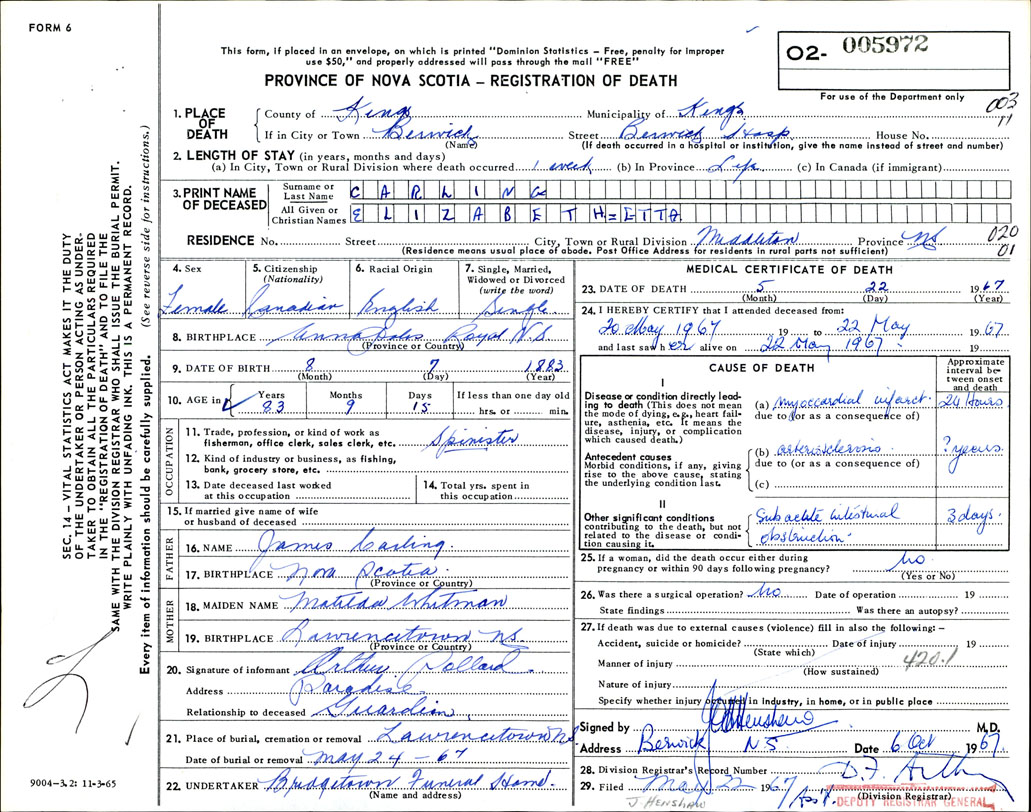 FORM 6
This form, if placed in an envelope, on which is printed "Dominion Statistics – Free, penalty for improper
use $50," and properly addressed will pass through the mail "FREE"
PROVINCE OF NOVA SCOTIA – REGISTRATION OF DEATH
O2- 005972
For use of the Department only
003
11
1. PLACE OF DEATH
County of Kings Municipality of Kings
If in City or Town Berwick Street Berwick Hosp House No.
(Name) (If death occurred in a hospital or institution, give the name instead of street and number)
2. LENGTH OF STAY (in years, months and days)
(a) In City, Town or Rural Division where death occurred 1 week (b) In Province Life (c) In Canada (if immigrant)
3. PRINT NAME OF DECEASED
Surname or Last Name CARLING
All Given or Christian Names ELIZABETH=ETTA
RESIDENCE No. Street City, Town or Rural Division Middleton Province NS
(Residence means usual place of abode. Post Office Address for residents in rural parts not sufficient)
020
01
4. Sex Female
5. Citizenship (Nationality) Canadian
6. Racial Origin English
7. Single, Married, Widowed or Divorced (write the word) Single
8. BIRTHPLACE Annapolis Royal N.S
(Province or Country)
9. DATE OF BIRTH 8 7 1883
(Month) (Day) (Year)
10. AGE in Years 83 Months 9 Days 15 If less than one day old hrs. or min.
OCCUPATION
11. Trade, profession, or kind of work as fisherman, office clerk, sales clerk, etc. Spinister
12. Kind of industry or business, as fishing, bank, grocery store, etc.
13. Date deceased last worked at this occupation
14. Total yrs. spent in this occupation
15. If married give name of wife or husband of deceased
FATHER
16. NAME James Carling.
17. BIRTHPLACE Nova Scotia
(Province or Country)
MOTHER
18. MAIDEN NAME Matilda Whitman
19. BIRTHPLACE Lawrencetown NS.
(Province or Country)
20. Signature of informant Arthur Pollard
Address Paradise
Relationship to deceased Guardian
21. Place of burial, cremation or removal Lawrencetown NS
Date of burial or removal May 24 – 67
22. UNDERTAKER Bridgetown Funeral Home.
(Name and address)
MEDICAL CERTIFICATE OF DEATH
23. DATE OF DEATH 5 22 1967
(Month) (Day) (Year)
24. I HEREBY CERTIFY that I attended deceased from:
20 May 1967 19 to 22 May 1967
and last saw her alive on 22 May 1967. 19
CAUSE OF DEATH
Approximate interval between onset and death
I
Disease or condition directly leading to death (This does not mean the mode of dying, e.g., heart failure, asthenia, etc. It means the disease, injury, or complication which caused death.)
(a) myocardial infarct 24 Hours
due to (or as a consequence of)
Antecedent causes
Morbid conditions, if any, giving rise to the above cause, stating the underlying condition last.
(b) arteriosclerosis ? years
due to (or as a consequence of)
(c)
II
Other significant conditions contributing to the death, but not related to the disease or condition causing it.
Subacute intestinal obstruction. 3 days.
25. If a woman, did the death occur either during pregnancy or within 90 days following pregnancy? No
(Yes or No)
26. Was there a surgical operation? No Date of operation 19
State findings Was there an autopsy?
27. If death was due to external causes (violence) fill in also the following: –
Accident, suicide or homicide? Date of injury 19
(State which)
Manner of injury 420.1
(How sustained)
Nature of injury
Specify whether injury occurred in Industry, in home, or in public place
Signed by J Henshaw M.D.
Address Berwick NS Date 6 Oct 1967.
28. Division Registrar's Record Number
29. Filed May 22 1967 D. F.
(Division Registrar)
Ass't. DEPUTY REGISTRAR GENERAL
J HENSHAW
SEC. 14 – VITAL STATISTICS ACT MAKES IT THE DUTY
OF THE UNDERTAKER OR PERSON ACTING AS UNDER-
TAKER TO OBTAIN ALL THE PARTICULARS REQUIRED
IN THE "REGISTRATION OF DEATH" AND TO FILE THE
SAME WITH THE DIVISION REGISTRAR WHO SHALL ISSUE THE BURIAL PERMIT.
WRITE PLAINLY WITH UNFADING INK. THIS IS A PERMANENT RECORD.
Every item of information should be carefully supplied. (See reverse side for instructions.)
9004–3.2: 11-3-65